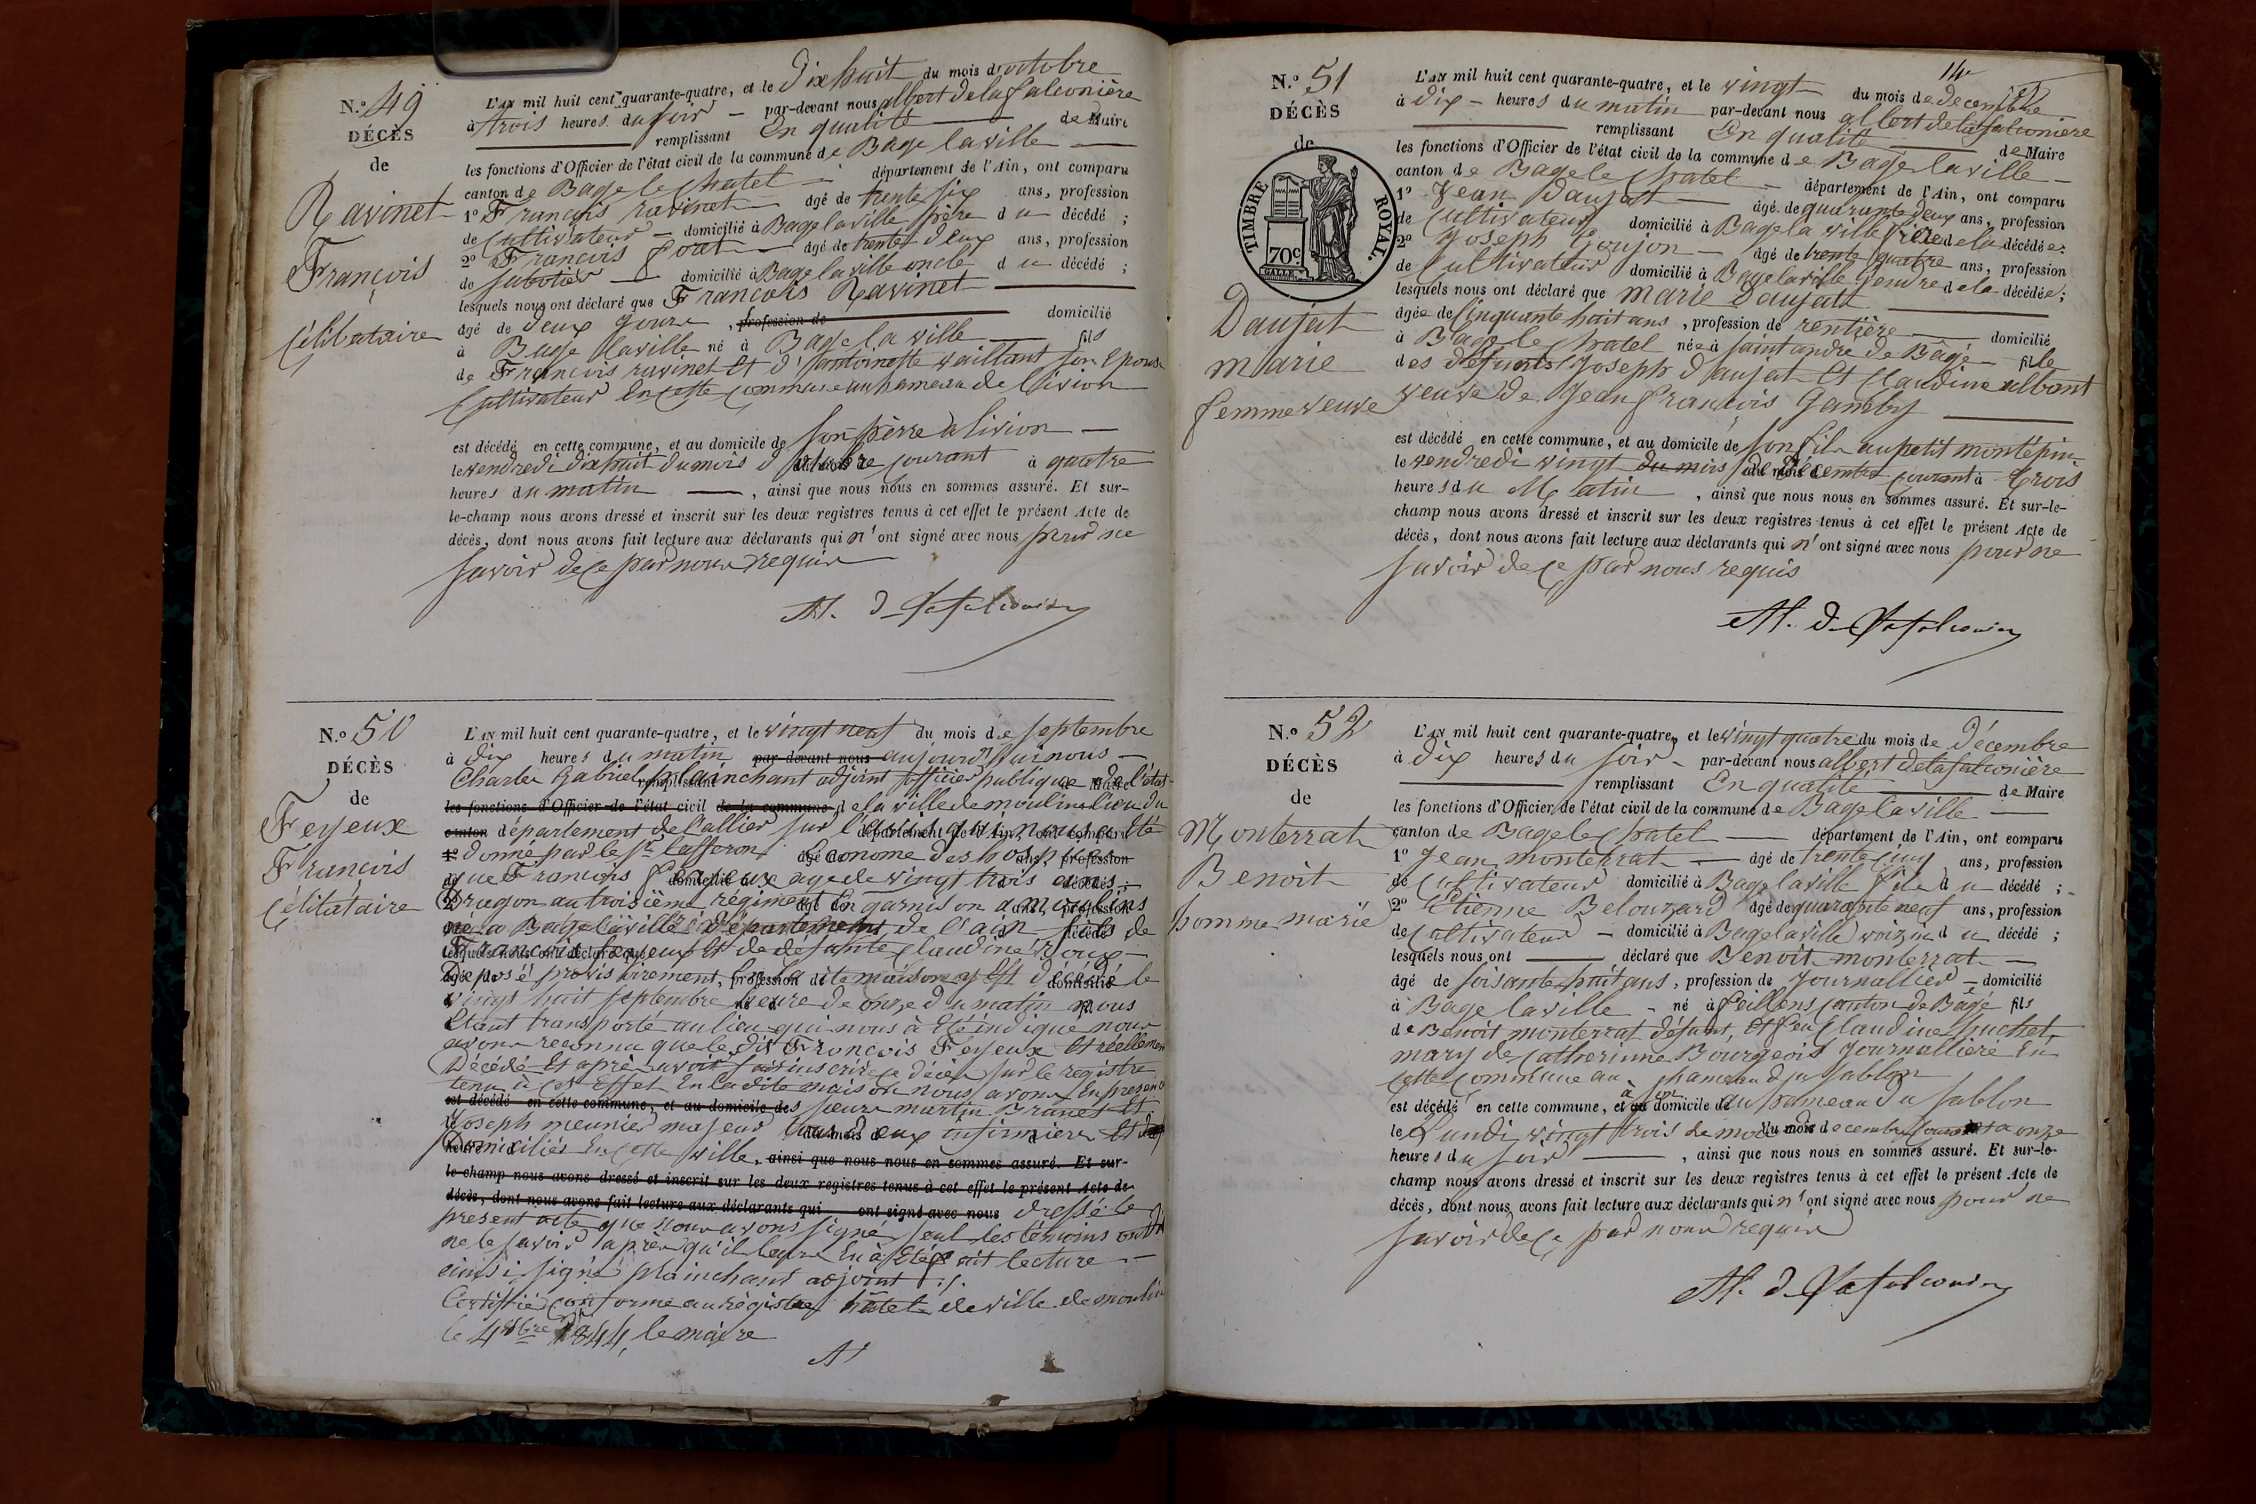 N.º 49
DÉCÈS
de
Ravinet
François
Célibataire
L'AN mil huit cent quarante-quatre, et le Dixhuit du mois d'octobre
à trois heures du soir — par-devant nous albert delafalconière
remplissant En qualité de Maire
les fonctions d'Officier de l'état civil de la commune de Bage la ville
canton de Bage le Chatel département de l'Ain, ont comparu
1º François ravinet âgé de trente six ans, profession
de Cultivateur domicilié à Bage la ville père du décédé ;
2º François âgé de trente deux ans, profession
de sabotier domicilié à Bage la ville oncle du décédé ;
lesquels nous ont déclaré que François Ravinet
âgé de deux jours , profession de domicilié
à Bage laville né à Bage la ville fils
de François ravinet Et d'antoinette vaillant son Epouse
Cultivateur En cette commune au hameau de Civion
est décédé en cette commune, et au domicile de son père à Civion
le vendredi dixhuit du mois d'octobre courant à quatre
heures du matin , ainsi que nous nous en sommes assuré. Et sur-
le-champ nous avons dressé et inscrit sur les deux registres tenus à cet effet le présent Acte de
décès, dont nous avons fait lecture aux déclarants qui n'ont signé avec nous pour ne
savoir de ce par nous requis
Al. d Lafalconière
N.º 50
DÉCÈS
de
Feyeux
François
Célitataire
L'AN mil huit cent quarante-quatre, et le vingt neuf du mois de septembre
à dix heures du matin par-devant nous aujourd'hui nous
Charles Gabriel plainchant adjoint officier publique de l'état
les fonctions d'Officier de l'état civil de la commune de la ville de moulins lieu du
canton département de l'allier sur l'avis qui nous a été
donné par le Sr Lasseron Econome des hospices
que François Feyeux age de vingt trois ans
Dragon au troisième régiment En garnison a moulins
né a Bage laville département de l'ain fils de
François feyeux Et de défunte Claudine roux
Déposé provisoirement En la dite maison y est décédé le
vingt huit septembre heure de onze du matin nous
Etant transporté au lieu qui nous à Eté indiqué nous
avons reconnu que le dit François Feyeux Et réellement
Décédé Et après avoir fait inscrire ce décès sur le registre
tenu à cet Effet En la dite maison nous avons En presence
est décédé en cette commune, et au domicile des sieurs martin Brunet Et
Joseph meunier majeurs tous deux infirmiers Et
Domiciliés En cette ville. ainsi que nous nous en sommes assuré. Et sur-
le-champ nous avons dressé et inscrit sur les deux registres tenus à cet effet le présent Acte de
décès, dont nous avons fait lecture aux déclarants qui ont signé avec nous dressé le
present acte que nous avons signé seul les témoins ont dit
ne le savoir après qu'il leur En à Eté fait lecture
ainsi signé plainchant adjoint
Certifié conforme au régistre hotel de ville de moulin
le 4 8bre 1844, le maire
Al
14e
N.º 51
DÉCÈS
de
TIMBRE ROYAL.
70c
Daujat
marie
femme veuve
L'AN mil huit cent quarante-quatre, et le vingt du mois de decembre
à dix — heures du matin par-devant nous albert delafalconiere
remplissant En qualité de Maire
les fonctions d'Officier de l'état civil de la commune de Bage la ville
canton de Bage le Chatel département de l'Ain, ont comparu
1º Jean Daujat âgé de quarante deux ans, profession
de Cultivateur domicilié à Bage la ville frère de la décédée
2º Joseph Goujon âgé de trente quatre ans, profession
de Cultivateur domicilié à Bage la ville Gendre de la décédée ;
lesquels nous ont déclaré que marie Daujatt
âgée de Cinquante huit ans , profession de rentière domicilié
à Bage le Chatel née à saint andré de Bâgé fille
des défunts Joseph daujat Et Claudine albant
veuve de Jean françois Gamby
est décédé en cette commune, et au domicile de son fils au petit montépin
le vendredi vingt du mois de décembre courant à Trois
heures du Matin , ainsi que nous nous en sommes assuré. Et sur-le-
champ nous avons dressé et inscrit sur les deux registres tenus à cet effet le présent Acte de
décès, dont nous avons fait lecture aux déclarants qui n'ont signé avec nous pour ne
savoir de ce par nous requis
Al. d Lafalconière
N.º 52
DÉCÈS
de
Monterrat
Benoit
homme marié
L'AN mil huit cent quarante-quatre, et le vingt quatre du mois de décembre
à dix heures du soir par-devant nous albert delafalconière
remplissant En qualité de Maire
les fonctions d'Officier de l'état civil de la commune de Bage la ville
canton de Bage le Chatel département de l'Ain, ont comparu
1º Jean monterrat âgé de trente Cinq ans, profession
de Cultivateur domicilié à Bage la ville fils du décédé ;
2º Etienne Belouzard âgé de quarante neuf ans, profession
de Cultivateur domicilié à Bage la ville voizin du décédé ;
lesquels nous ont déclaré que Benoit monterrat
âgé de soisante huit ans , profession de Journallier domicilié
à Bage la ville né à feillens canton de Bagé fils
de Benoit monterrat défunt, Et feu Claudine huchet,
mary de Catherinne Bourgeois Journalliere En
cette commune au hameau du sablon
est décédé en cette commune, et à son domicile au hameau du sablon
le Lundi vingt trois de mois du mois decembre courant à onze
heures du soir , ainsi que nous nous en sommes assuré. Et sur-le-
champ nous avons dressé et inscrit sur les deux registres tenus à cet effet le présent Acte de
décès, dont nous avons fait lecture aux déclarants qui n'ont signé avec nous pour ne
savoir de ce par nous requis
Al. d Lafalconière